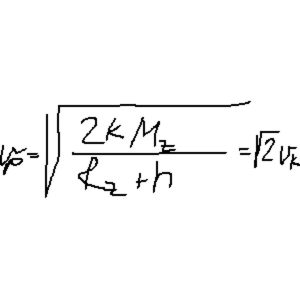 v_p = √(2κM_z / (R_z + h)) = √2 v_k